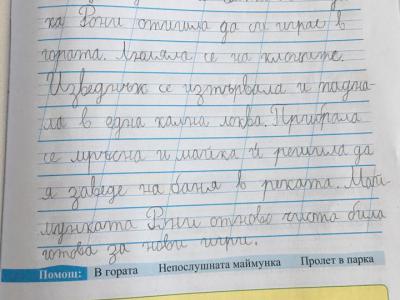 ка Рони отишла да си играе в
гората. Люляла се на клоните.
Изведнъж се изтървала и падна-
ла в една кална локва. Прибрала
се мръсна и майка ѝ решила да
я заведе на баня в реката. Май-
мунката Рони отново чиста била
готова за нови игри.
Помощ: В гората Непослушната маймунка Пролет в парка